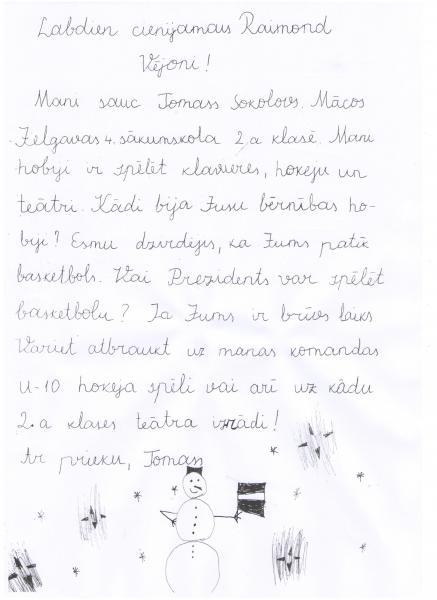 Labdien cienījamais Raimond
Vējoni!
Mani sauc Tomass Sokolovs. Mācos
Jelgavas 4. sākumskola 2.a klasē. Mani
hobiji ir spēlēt klavieres, hokeju un
teātri. Kādi bija Jusu bērnības ho-
biji? Esmu dzirdējis, ka Jums patīk
basketbols. Vai Prezidents var spēlēt
basketbolu? Ja Jums ir brīvs laiks
Variet atbraukt uz manas komandas
U-10 hokeja spēli vai arī uz kādu
2.a klases teātra izrādi!
Ar prieku, Tomass